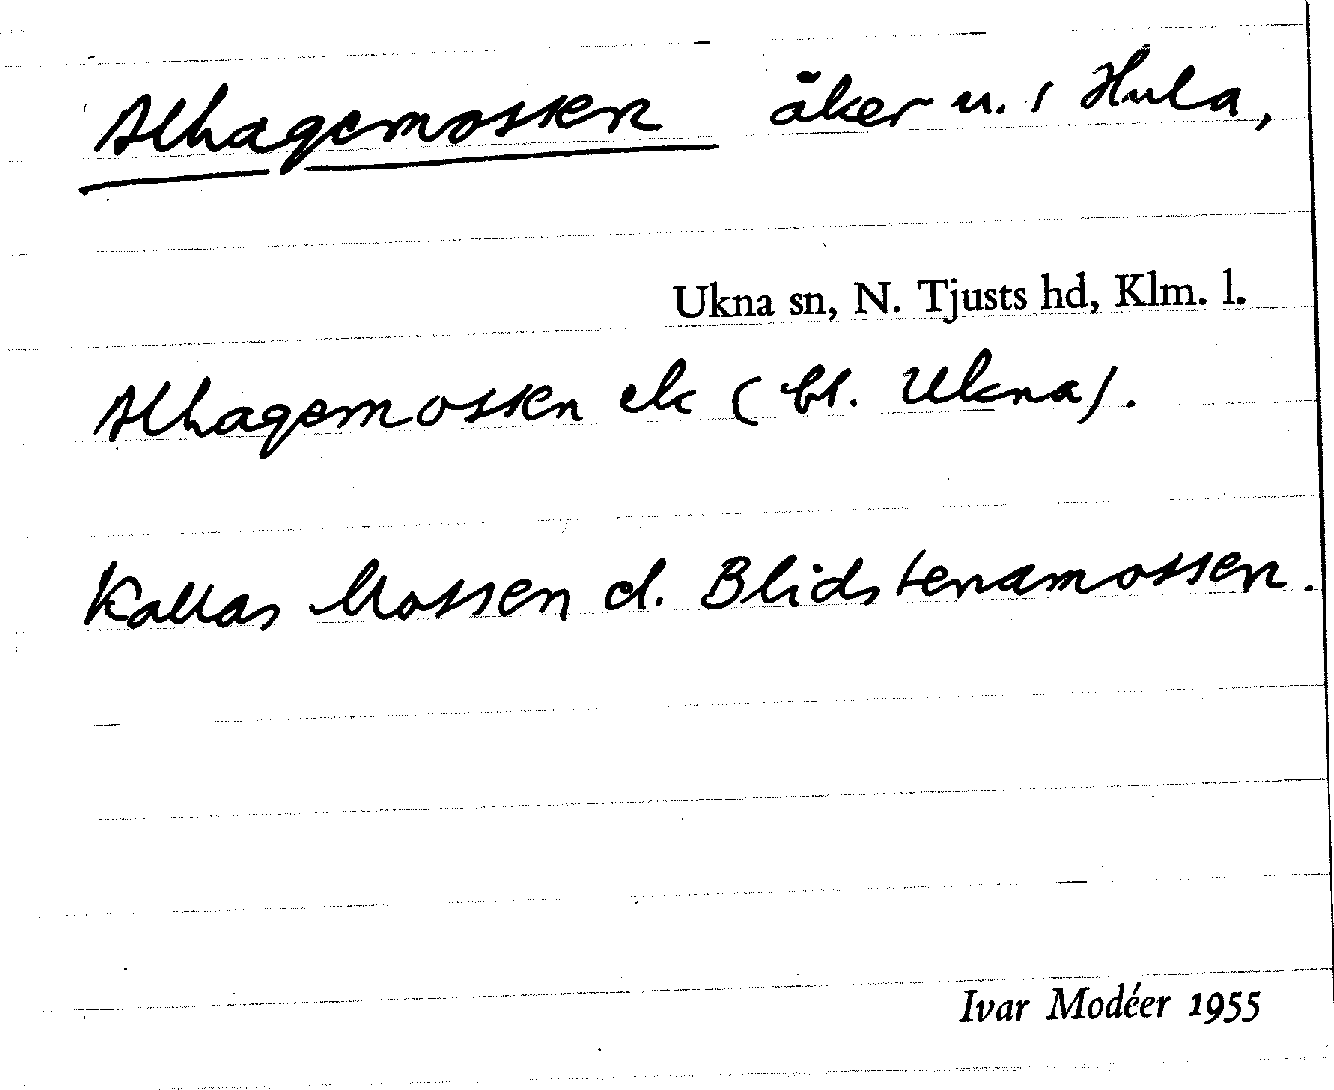 Alhagemossen åker u. 1 Hula,
Ukna sn, N. Tjusts hd, Klm. l.
Alhagemossen ek (bl. Ukna).
Kallas Mossen el. Blidstenamossen.
Ivar Modéer 1955